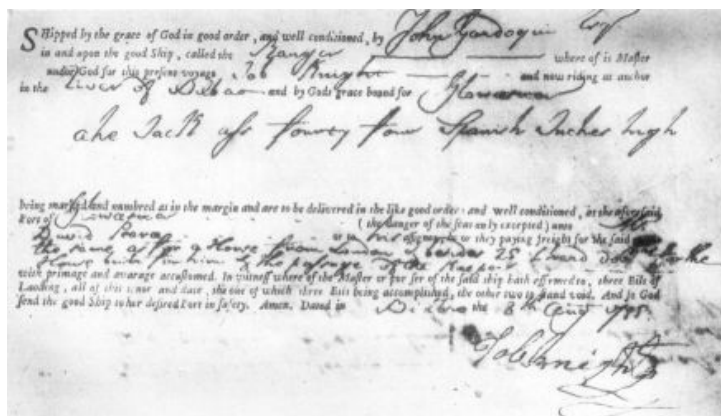 SHipped by the grace of God in good order, and well conditioned, by John Gardoqui Esqr
in and upon the good Ship, called the Ranger where of is Master
under God for this present voyage Job Knight and now riding at anchor
in the River of Bilbao and by Gods grace bound for
one Jack ass fourty four Spanish Inches high
being marked and numbred as in the margin and are to be delivered in the like good order and well conditioned, at the aforesaid
Port of (the danger of the seas only excepted) unto
David or to his assignes, or they paying freight for the said
the same as for a Horse from London
Horse with him & the passage of the Keeper
with primage and avarage accustomed. In witness where of the Master or purser of the said ship hath affirmed to, three Bils of
Laading, all of this tenor and date, the one of which three Bils being accomplished, the other two to stand void. And so God
send the good Ship to her desired Port in safety. Amen. Dated in Bilbao the 8th Augt 1785
Job Knight